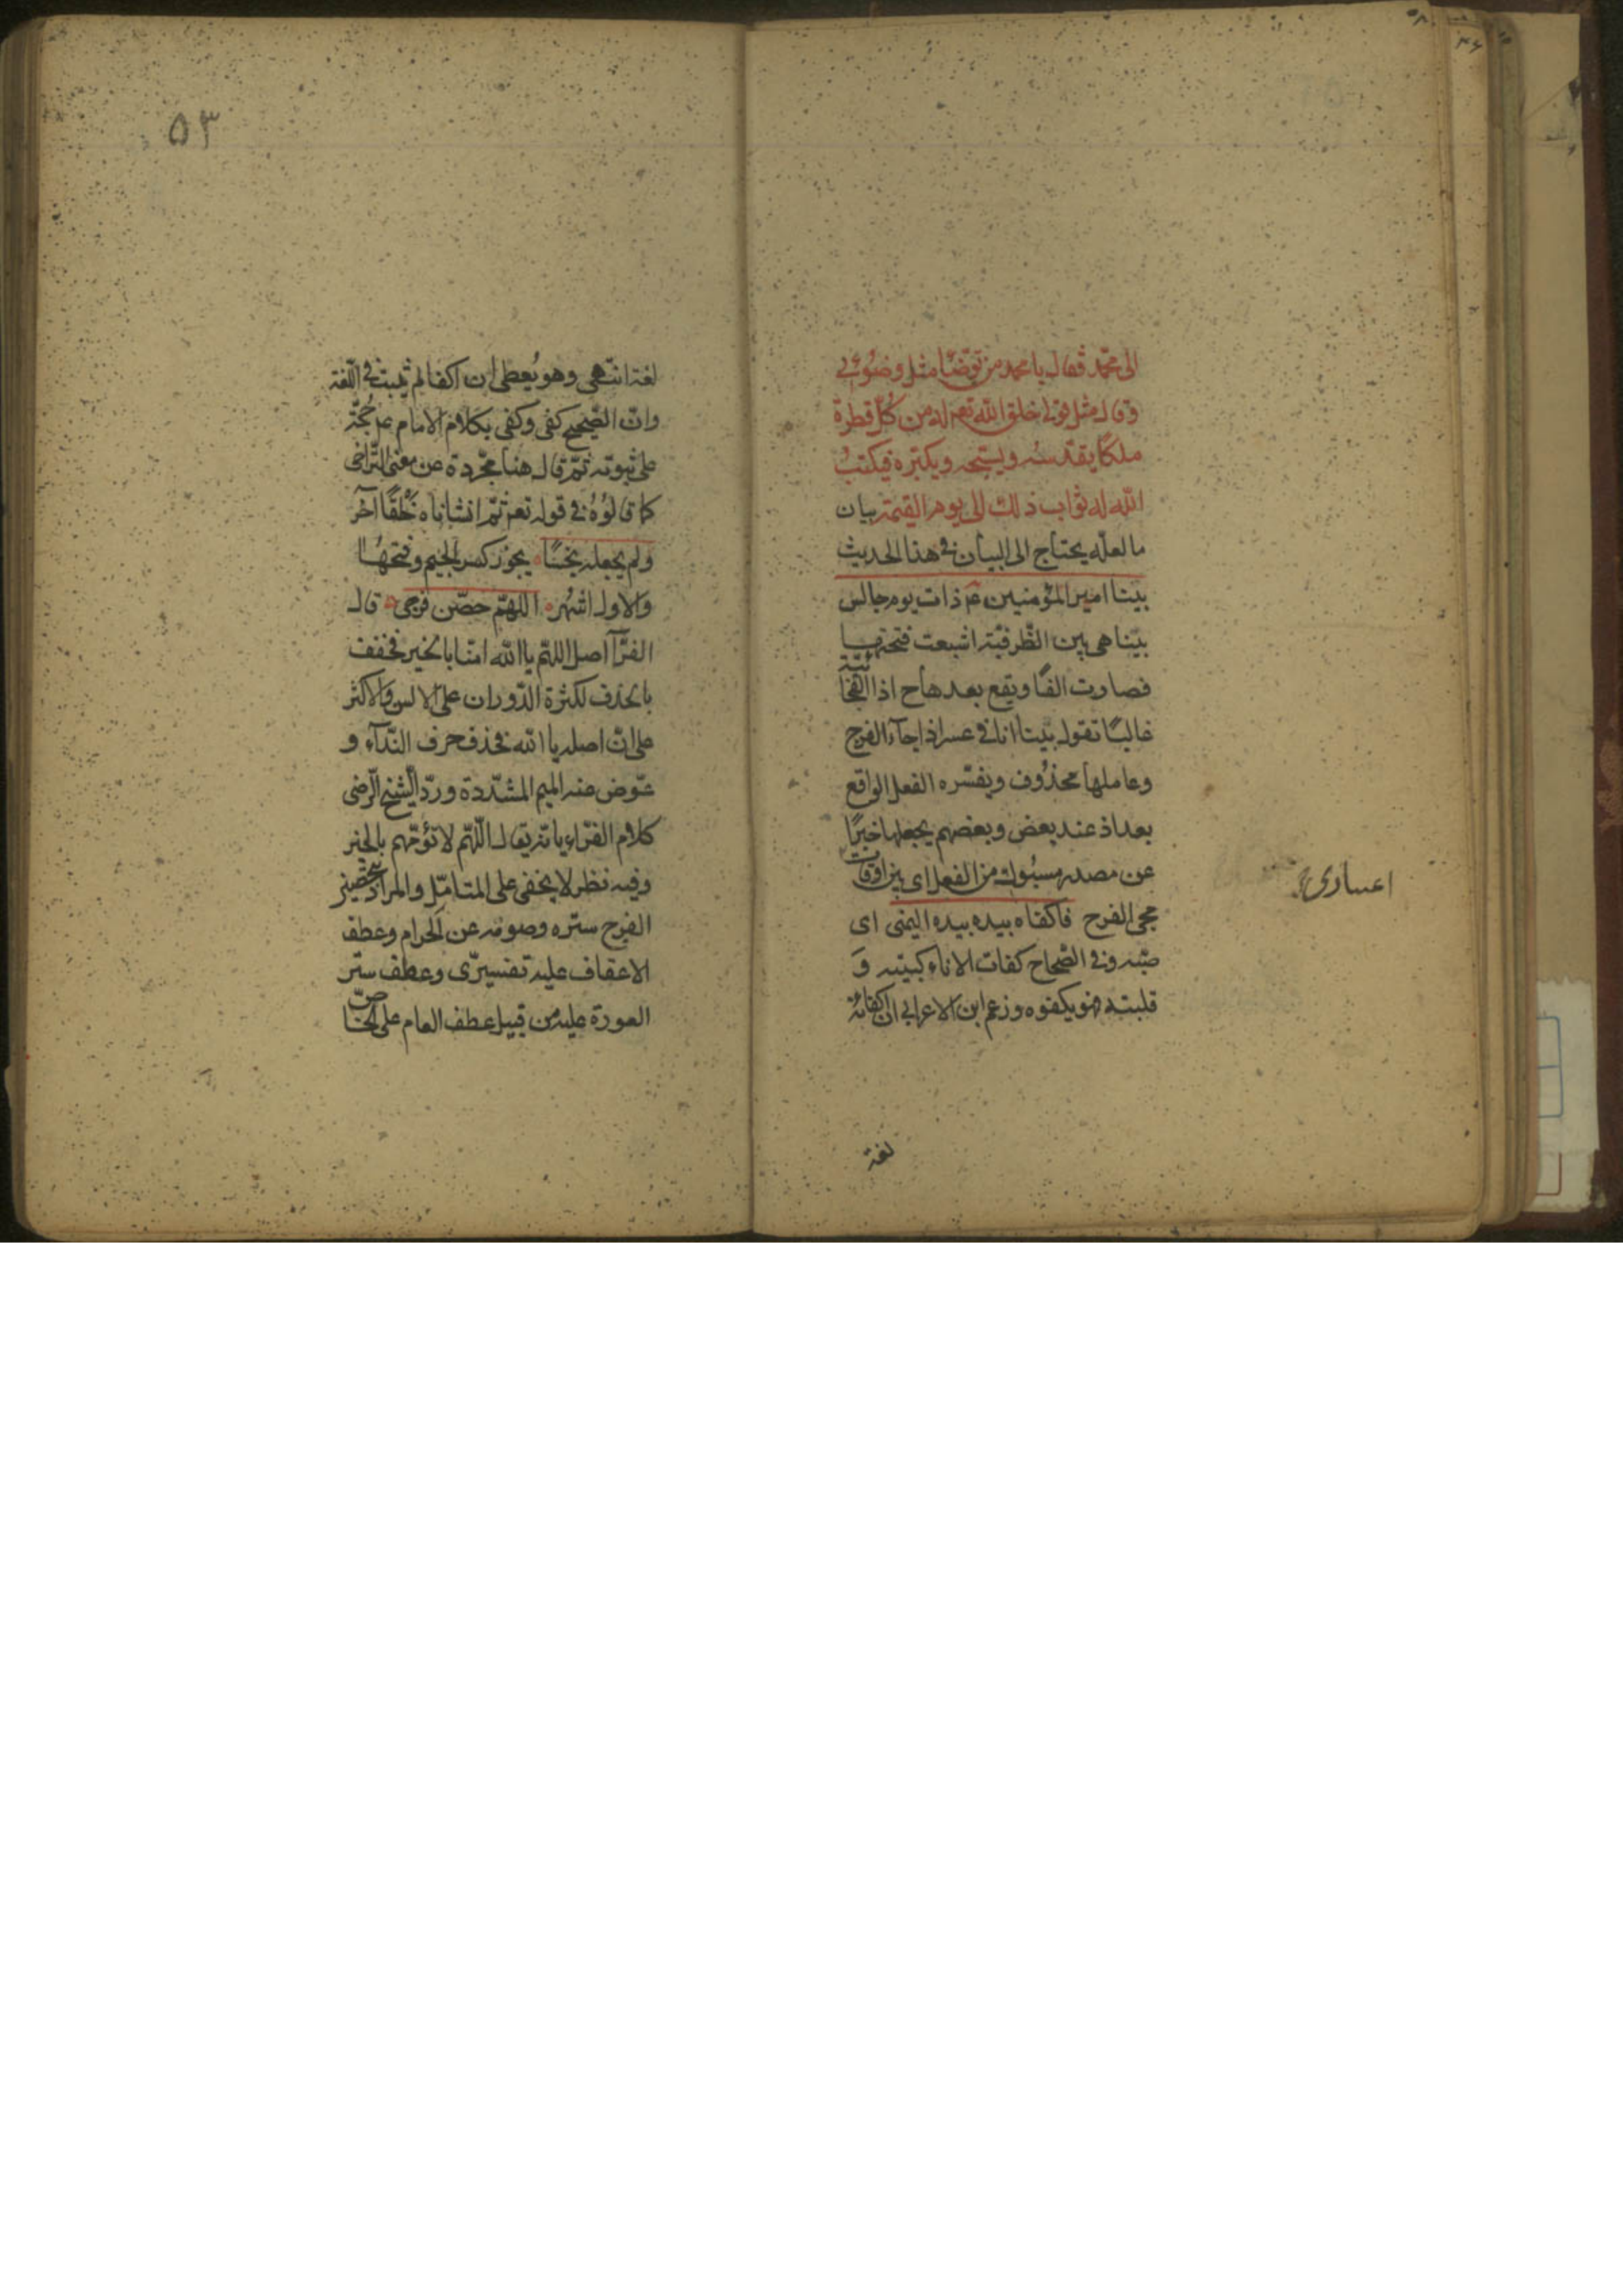 الى محمد فقال يا محمد من توضا مثل وضوئى
وقال مثل قولى خلق الله تعم له من كل قطرة
ملكا يقدسه ويسبحه ويكبره فيكتب
الله له ثواب ذلك الى يوم القيمة بيان
ما لعله يحتاج الى البيان فى هذا الحديث
بينا امير المؤمنين عم ذات يوم جالس
بينا هى بين الظرفية اشبعت فتحتها
فصارت الفا ويقع بعدها ح اذا الفجائية
غالبا تقول بينا انا فى عسر اذا جاء الفرج
وعاملها محذوف ويفسره الفعل الواقع
بعد اذ عند بعض وبعضهم يجعلها خبرا
عن مصدر مسبوك من الفعل اى بين اوقات
مجى الفرح فاكفاه بيده بيده اليمنى اى
صبه وفى الصحاح كفات الاناء كببته و
قلبته فهو يكفوه وزعم ابن الاعرابى ان اكفاته
لغة
اعسارى
۵۳
لغة انتهى وهو يعطى ان اكفا لم يثبت فى اللغة
وان الصحيح كفى وكفى بكلام الامام عم حجة
على ثبوته ثم قال هنا مجردة عن معنى التراخى
كما قالوه فى قوله تعم ثم انشاناه خلقا آخر
ولم يجعله نجسا يجوز كسر الجيم وفتحها
والاول اشهر اللهم حصن فرجى قال
الفرآ اصل اللهم يا الله امنا بالخير فخفف
بالحذف لكثرة الدوران على الالسن والاكثر
على ان اصله يا الله فحذف حرف النداء و
عوض عنه الميم المشددة ورد الشيخ الرضى
كلام الفراء بانه يقال اللهم لا تؤمهم بالخير
وفيه نظر لا يخفى على المتامل والمراد بتحصين
الفرج ستره وصونه عن الحرام وعطف
الاعفاف عليه تفسيرى وعطف ستر
العورة عليه من قبيل عطف العام على الخاص